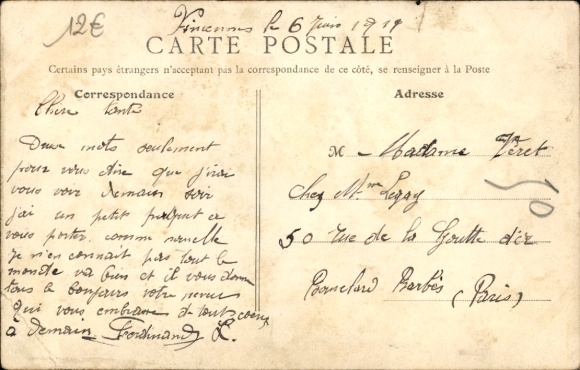 12€
Vincennes le 6 Juin 1919
CARTE POSTALE
Certains pays étrangers n'acceptant pas la correspondance de ce côté, se renseigner à la Poste
Correspondance
Chère tante
Deux mots seulement
pour vous dire que j'irai
vous voir demain soir
j'ai un petit paquet a
vous porter. comme nouvelle
je n'en connait pas tout le
monde va bien et il vous donne
tous le bonjours votre neveu
qui vous embrasse de tout coeur
à demain Ferdinand L.
Adresse
M - Madame Veret
Chez Mme
50 rue de la Goutte d'or
Boulevard Barbès (Paris)
50